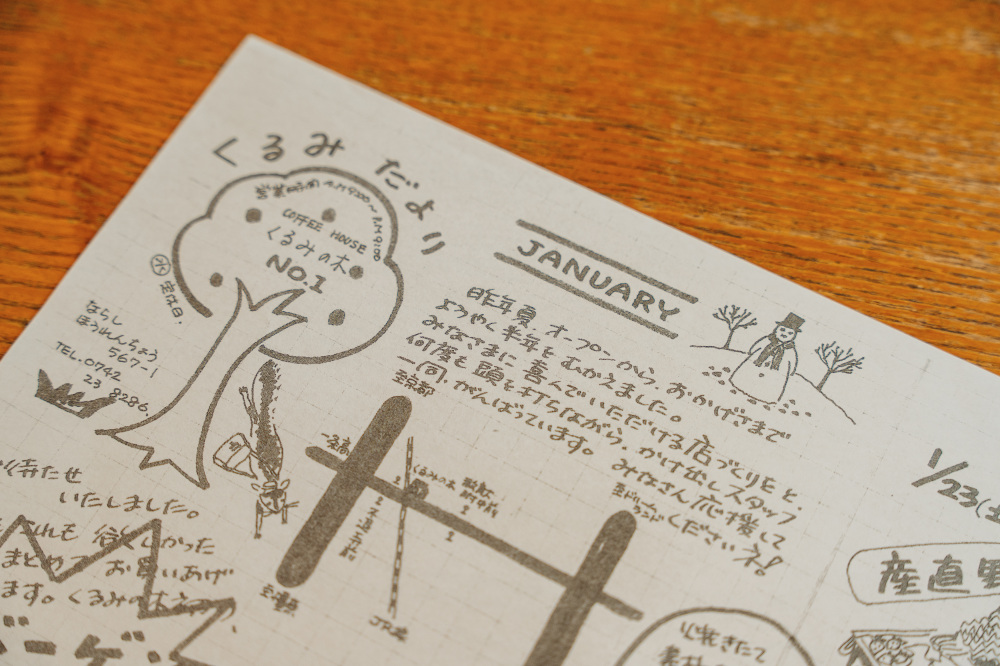 くるみだより
営業時間 A.M 9:00〜P.M 9:00
COFFEE HOUSE
くるみの木
NO.1
㊌ 定休日.
ならし
ほうれんちょう
567-1
TEL.0742
23 8286
JANUARY
昨年夏、オープンから、おかげさまで
ようやく半年をむかえました。
みなさまに喜んでいただける店づくりをと
何度も頭を打ちながら、かけ出しスタッフ
一同、がんばっています。みなさん応援して
くださいネ!
至京都
一条高
くるみの木
至ドリームランド
JR
1/23(土
産直
お待たせ
いたしました。
れも 欲しかった
まとめて お買いあげ
ます。くるみの木
心乾きたて
素材